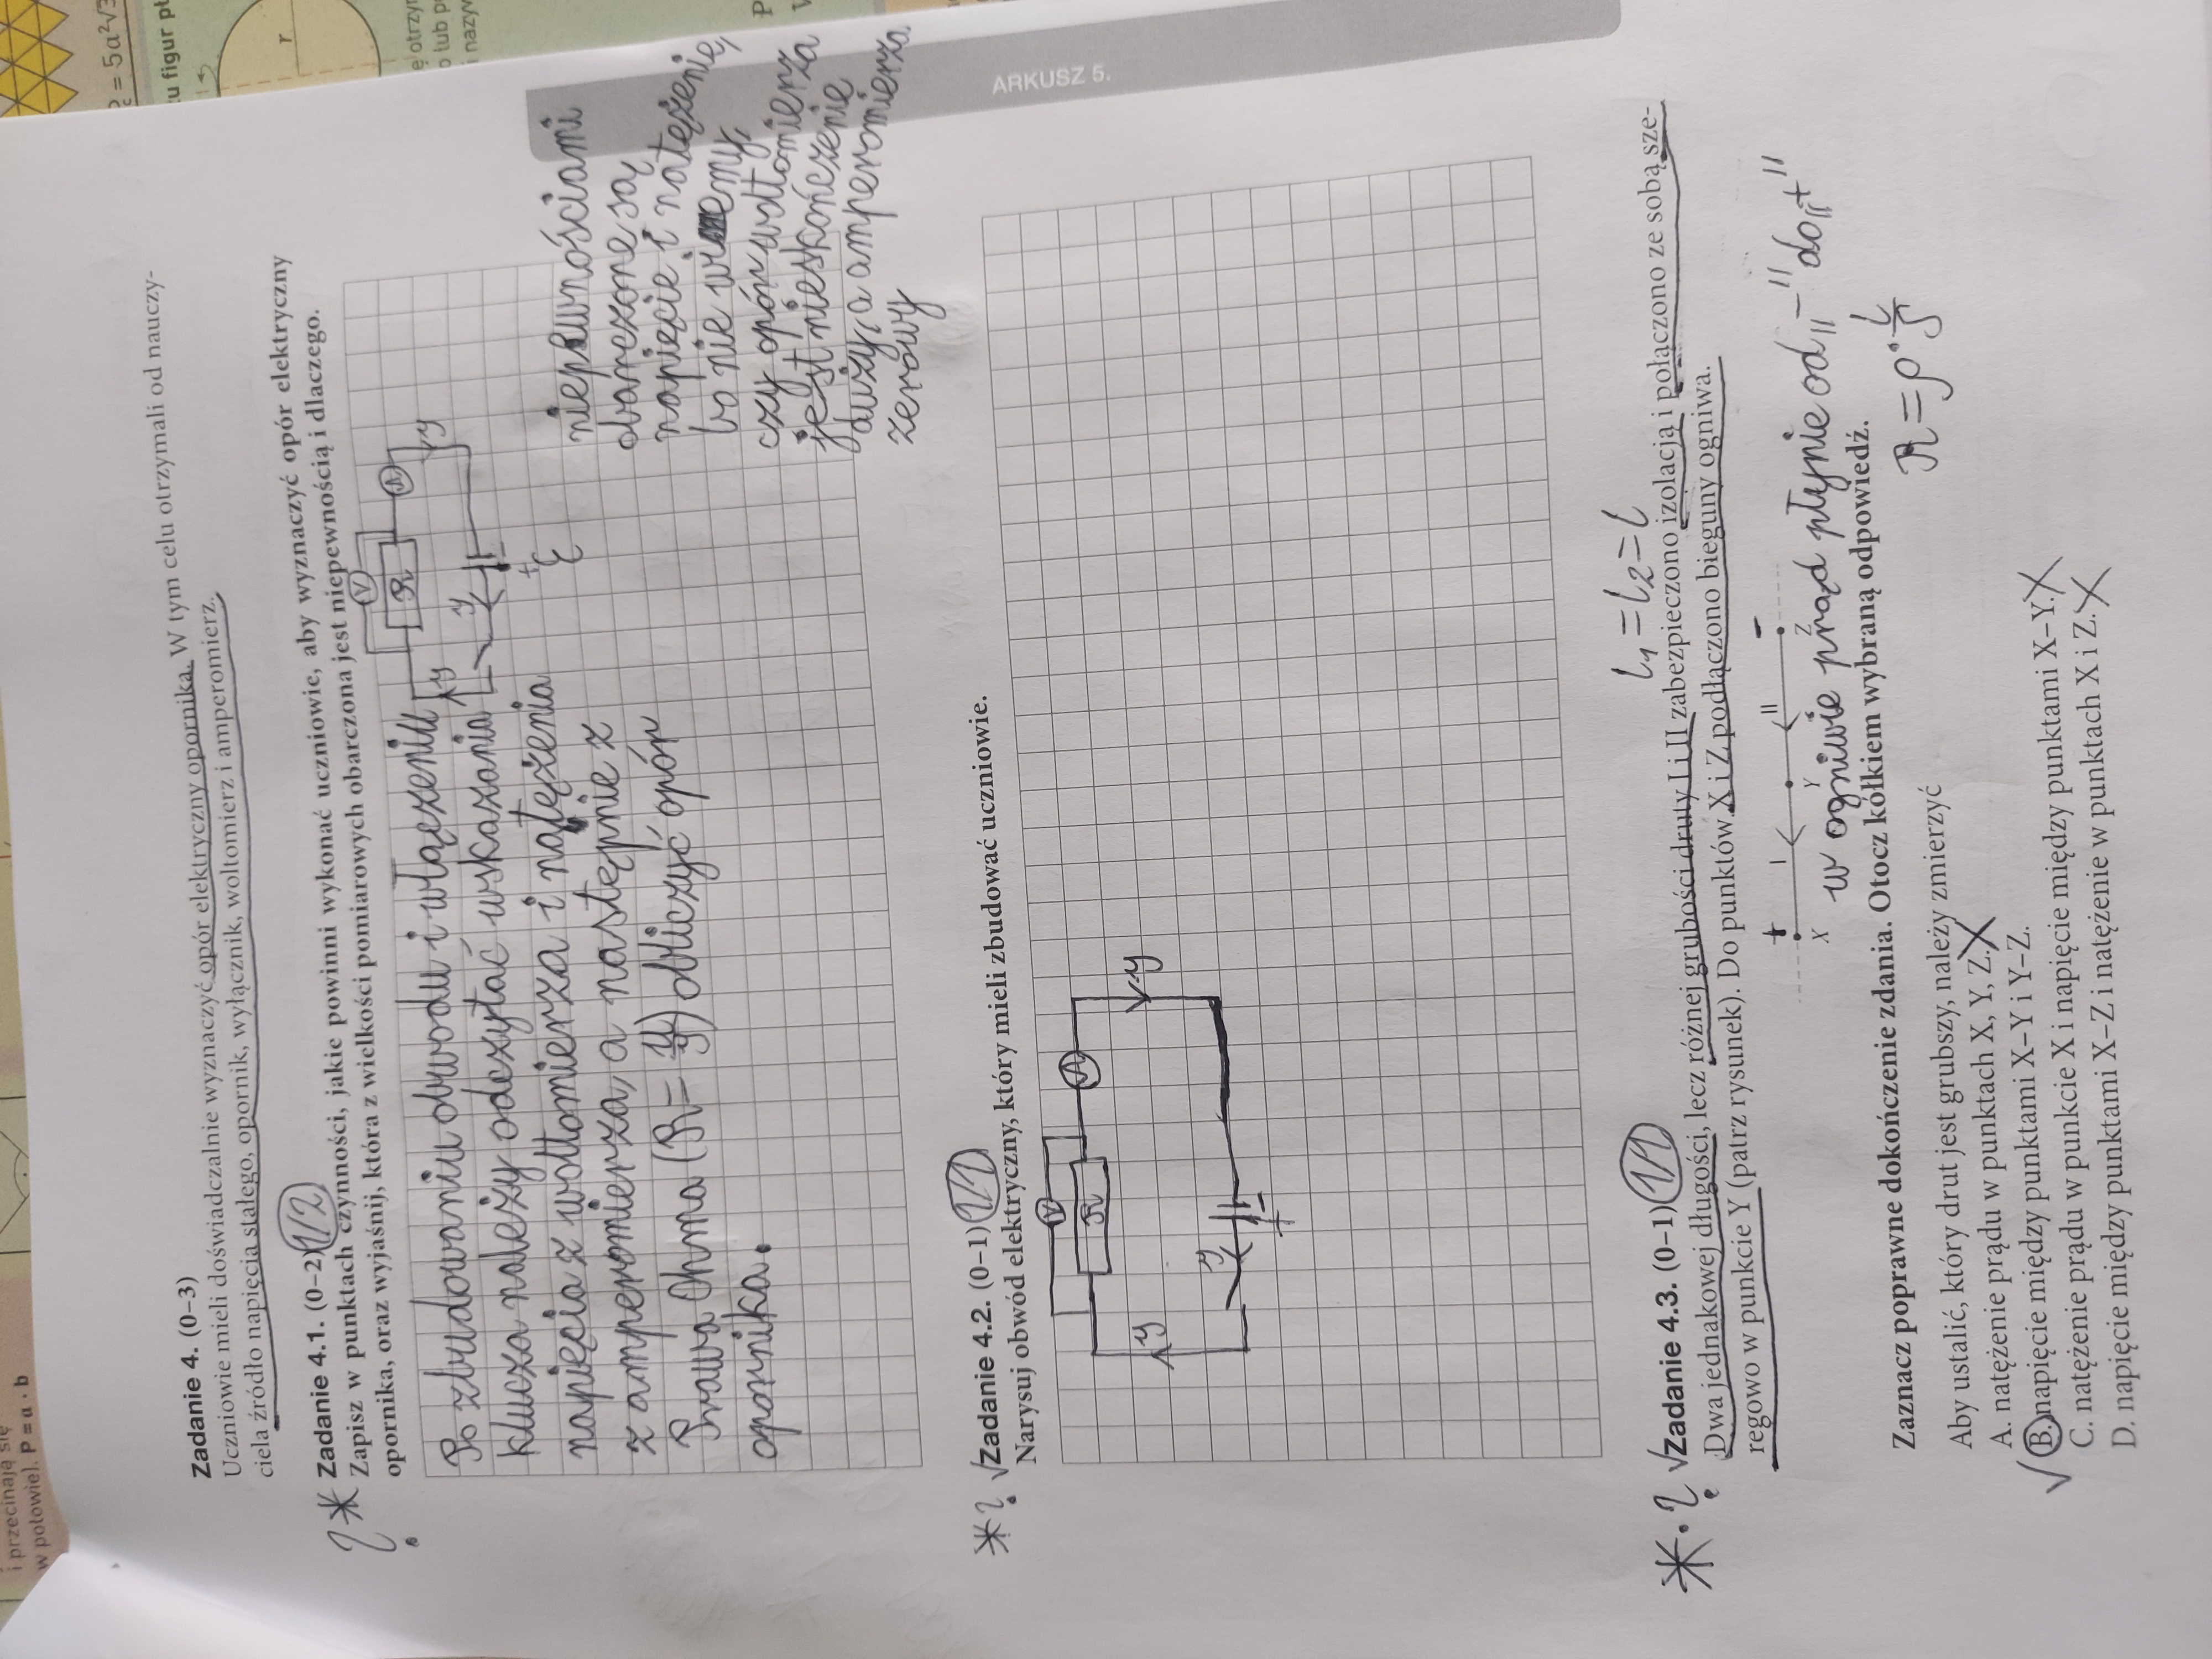 i przecinają się
w połowie). P = a · b
= 5a²√3
u figur pł
r
ę otrzy
o lub p
i nazyw
Zadanie 4. (0–3)
Uczniowie mieli doświadczalnie wyznaczyć opór elektryczny opornika. W tym celu otrzymali od nauczy-
ciela źródło napięcia stałego, opornik, wyłącznik, woltomierz i amperomierz.
Zadanie 4.1. (0–2) 1/2
Zapisz w punktach czynności, jakie powinni wykonać uczniowie, aby wyznaczyć opór elektryczny
opornika, oraz wyjaśnij, która z wielkości pomiarowych obarczona jest niepewnością i dlaczego.
Po zbudowaniu obwodu i włączeniu
klucza należy odczytać wskazania
napięcia z woltomierza i natężenia
z amperomierza, a następnie z
Prawa Ohma (R = U/I) obliczyć opór
opornika.
V
R
A
I
I
I
+ -
ε
niepewnościami
obarczone są
napięcie i natężenie,
bo nie wiemy,
czy opór woltomierza
jest nieskończenie
duży, a amperomierza
zerowy
ARKUSZ 5.
*? √Zadanie 4.2. (0–1) 1/1
Narysuj obwód elektryczny, który mieli zbudować uczniowie.
V
R
A
I
I
I
+ -
*? √Zadanie 4.3. (0–1) 1/1
l₁ = l₂ = l
Dwa jednakowej długości, lecz różnej grubości druty I i II zabezpieczono izolacją i połączono ze sobą sze-
regowo w punkcie Y (patrz rysunek). Do punktów X i Z podłączono bieguny ogniwa.
+ I II -
X Y Z
w ogniwie prąd płynie od „-" do „+"
Zaznacz poprawne dokończenie zdania. Otocz kółkiem wybraną odpowiedź.
R = ρ · l/S
Aby ustalić, który drut jest grubszy, należy zmierzyć
A. natężenie prądu w punktach X, Y, Z.
√ B. napięcie między punktami X–Y i Y–Z.
C. natężenie prądu w punkcie X i napięcie między punktami X–Y.
D. napięcie między punktami X–Z i natężenie w punktach X i Z.